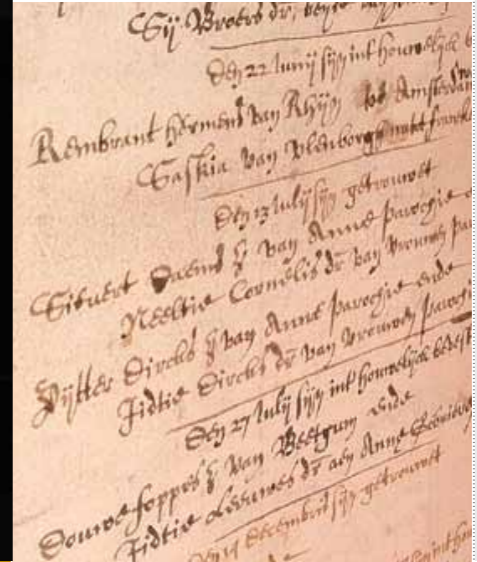 Sij Broers dr, beyde
Den 22 Junij sijn int houwelijck b
Rembrant Hermens van Rhijn tot Amsterdam
Saskia van Vlenborgh nu tot franek
Den 13 Julij sijn getrouwet
Sievert z van Anne parochie e
Neeltie Cornelis dr van vrouwen pa
Pijtter Dircks z van Anne parochie ende
Jidtie Dircks dr van vrouwen paroch
Den 27 Julij sijn int houwelijck bevest
Douwe foppes z van Beetgum ende
Jidtie Leeuwes dr aen Anne
Den Decembris sijn getrouwet